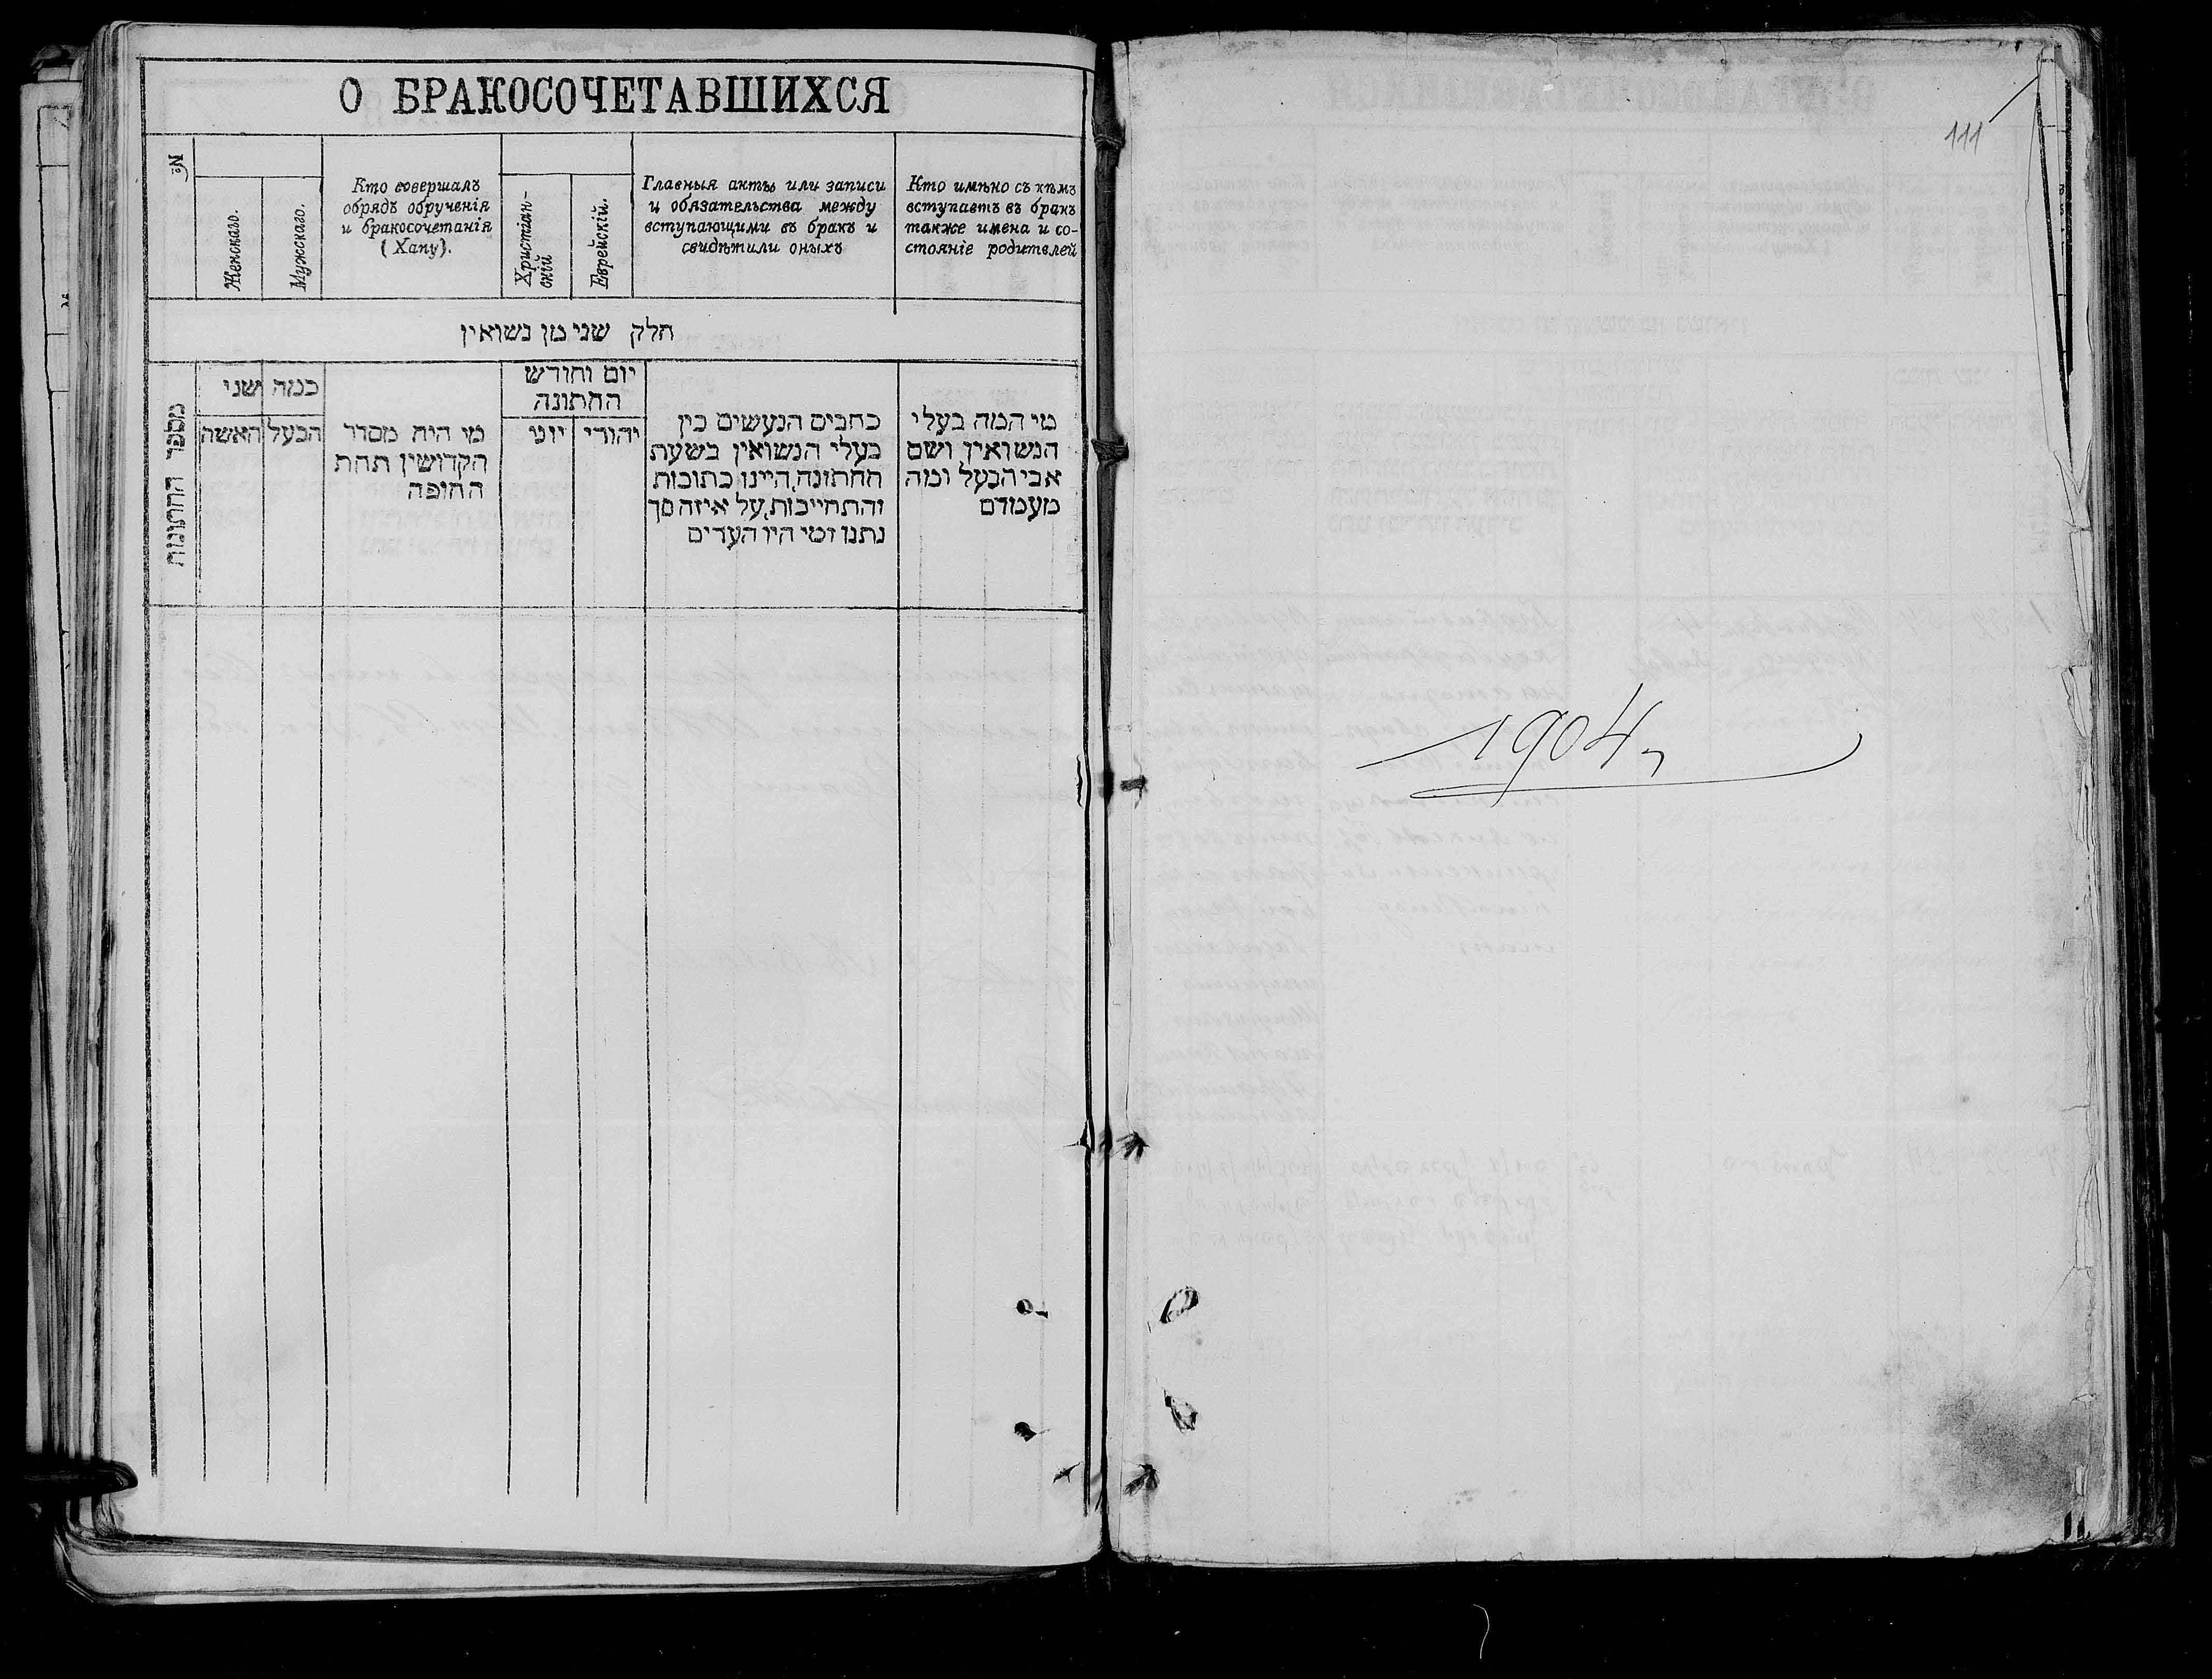 О БРАКОСОЧЕТАВШИХСЯ
№
Женскаго.
Мужскаго.
Кто совершалъ
обрядъ обрученія
и бракосочетанія
(Хапу).
Христіан-
скій
Еврейскій.
Главныя акты или записи
и обязательства между
вступающими въ бракъ и
свидѣтили оныхъ
Кто имѣно съ кѣмъ
вступаетъ въ бракъ
также имена и со-
стояніе родителей
חלק שני מן נשואין
מספר החתונות
כמה שני
האשה
הבעל
מי היה מסדר
הקדושין תחת
החופה
יום וחודש
החתונה
יוני
יהודי
כתבים הנעשים בין
בעלי הנשואין בשעת
החתונה, היינו כתובות
והתחייבות, על איזה סך
נתנו ומי היו העדים
מי המה בעלי
הנשואין ושם
אבי הבעל ומה
מעמדם
111
1904